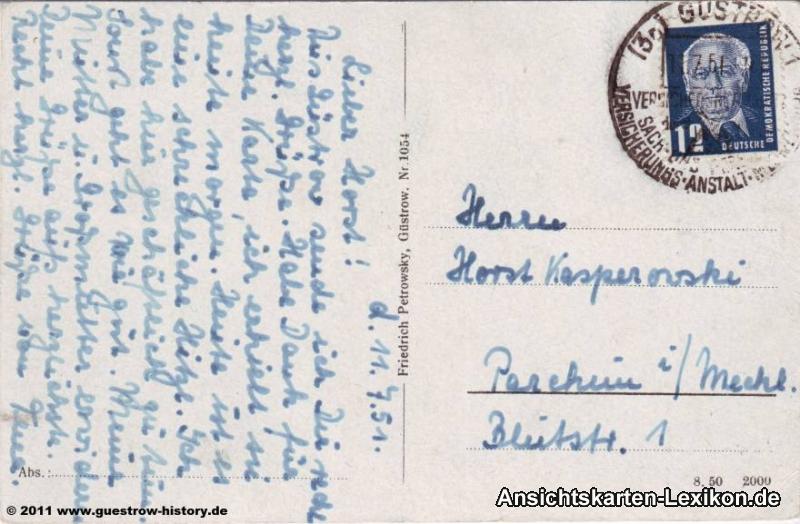 d. 11.7.51.
Lieber Horst!
Aus Güstrow sende ich Dir recht
herzl. Grüße. Habe Dank für
Deine Karte, ich erhielt sie
heute morgen. Heute ist es
eine schreckliche Hitze. Ich
habe hier geschäftlich zu tun.
Sonst geht es mir gut. Meine
Mutter u. Großmutter erwidern
Deine Grüße aufs herzlichste.
Recht herzl. Grüße von
Abs.:
Friedrich Petrowsky, Güstrow. Nr. 1054
(3a) GÜSTROW 1
7.51
SACH-
VERSICHERUNGS-ANSTALT
12
DEUTSCHE
DEMOKRATISCHE REPUBLIK
Herrn
Horst Kasperowski
Parchim i/Meckl.
Blutstr. 1
8. 50 2000
© 2011 www.guestrow-history.de
Ansichtskarten-Lexikon.de